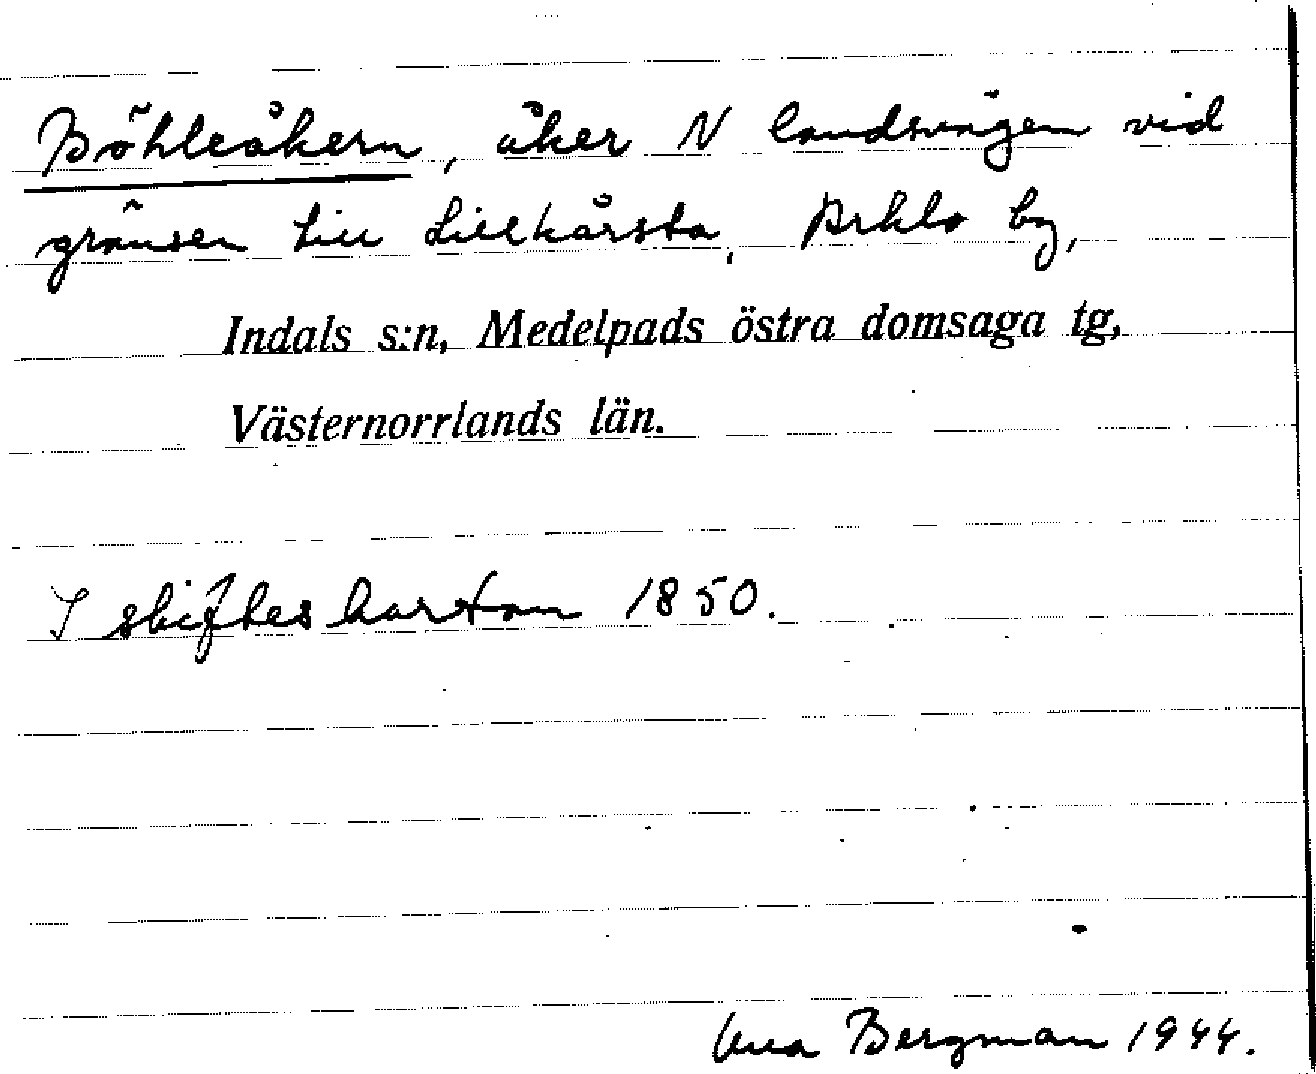 Böhleåkern, åker N landsvägen vid
gränsen till Lillkårsta, Arklo by,
Indals s:n, Medelpads östra domsaga tg,
Västernorrlands län.
I skifteskartan 1850.
Bergman 1944.